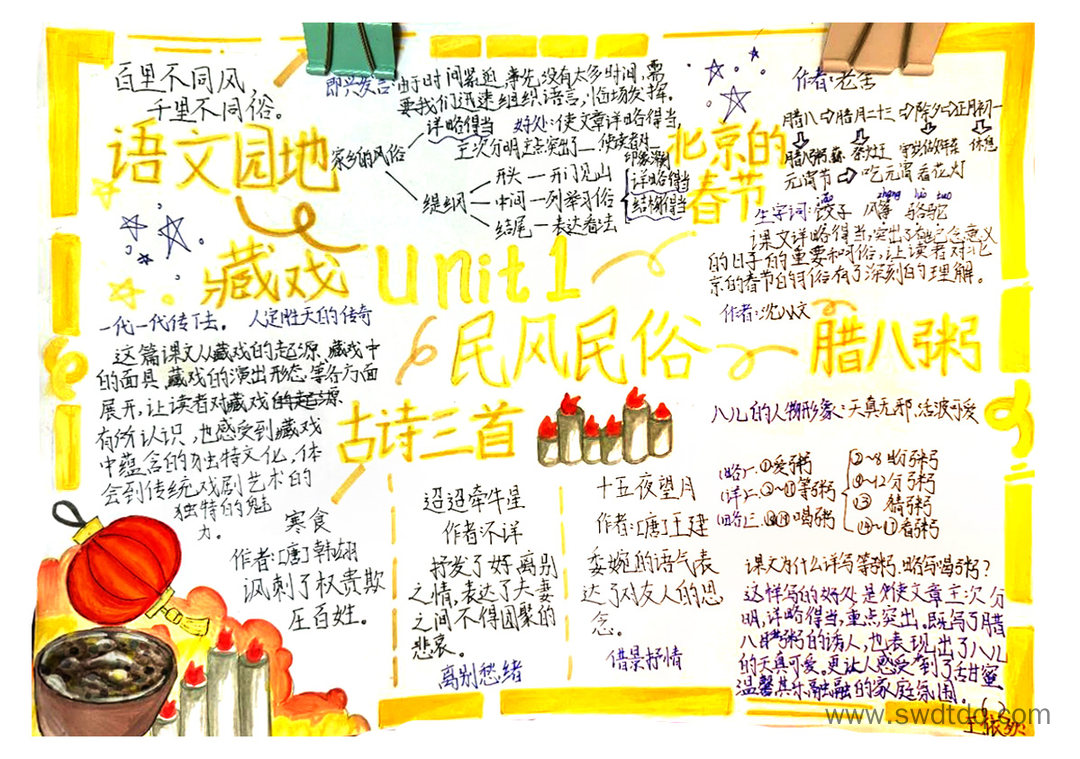 百里不同风,
千里不同俗。
语文园地
即兴发言:由于时间紧迫,事先没有太多时间,需
要我们迅速组织语言,临场发挥。
家乡的风俗
详略得当 好处:使文章详略得当,
主次分明重点突出 使读者对
印象深刻
提纲
开头—开门见山
中间—列举习俗
结尾—表达看法
详略得当
结构得当
北京的
春节
作者:老舍
腊八⇨腊月二十三⇨除夕⇨正月初一
腊八粥 蒜 祭灶王 休息
元宵节⇨吃元宵看花灯
生字词:饺子 风筝 骆驼
课文详略得当,突出了
的日子的重要和习俗,让读者对北
京的春节的习俗有了深刻的理解。
藏戏
一代一代传下去。 人定胜天的传奇
这篇课文从藏戏的起源、藏戏中
的面具、藏戏的演出形态等各方面
展开,让读者对藏戏的起源
有所认识,也感受到藏戏
中蕴含的独特文化,体
会到传统戏剧艺术的
独特的魅
力。
Unit1
民风民俗
古诗三首
寒食
作者:[唐]韩翃
讽刺了权贵欺
压百姓。
迢迢牵牛星
作者不详
抒发了好离别
之情,表达了夫妻
之间不得团聚的
悲哀。
离别愁绪
十五夜望月
作者:[唐]王建
委婉的语气表
达了对友人的思
念。
借景抒情
作者:沈从文
腊八粥
八儿的人物形象:天真无邪,活波可爱
(略)一、①爱粥
(详)二、②~⑰等粥
(略)三、⑱⑲喝粥
②~8盼粥
9~12分粥
13 猜粥
⑭~⑰看粥
课文为什么详写等粥,略写喝粥?
这样写的好处是使文章主次分
明,详略得当,重点突出,既写了腊
八粥的诱人,也表现出了八儿
的天真可爱。更让人感受到了甜蜜
温馨其乐融融的家庭氛围。
www.swdtdq.com